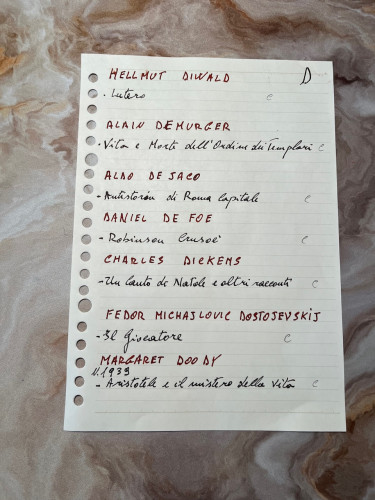 HELLMUT DIWALD D
· Lutero C
ALAIN DEMURGER
- Vita e Morte dell'Ordine dei Templari C
ALDO DE JACO
- Antistoria di Roma Capitale C
DANIEL DE FOE
- Robinson Crusoè C
CHARLES DICKENS
- Un Canto di Natale e altri racconti C
FEDOR MICHAJLOVIC DOSTOJEVSKIJ
- Il Giocatore C
MARGARET DOODY
N. 1939
- Aristotele e il mistero della Vita C